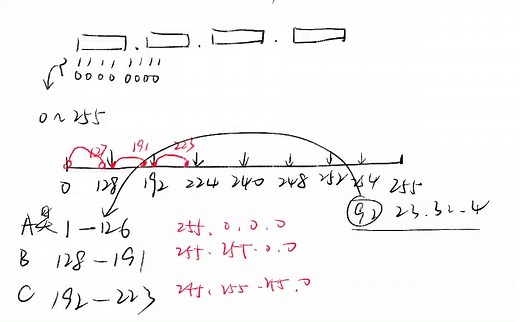 1111 1111
0000 0000
0~255
127 191 223
0 128 192 224 240 248 252 254 255
92 23.32.4
A类 1-126 255.0.0.0
B 128-191 255.255.0.0
C 192-223 255.255.255.0